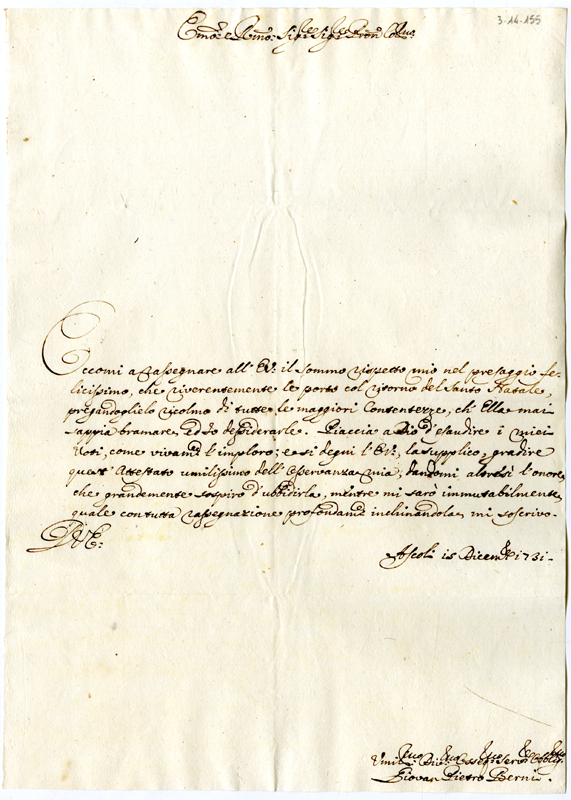 3-14-155
Emo: e Rmo: Sig:re Sig:re Pron Colmo:
Eccomi a rassegnare all'EV: il sommo rispetto mio nel presaggio fe-
licissimo, che riverentemente le porto col ritorno del Santo Natale,
pregandoglielo ricolmo di tutte le maggiori Contentezze, ch'Ella mai
sappia bramare, ed Io desiderarle. Piaccia a Dio d'esaudire i miei
Voti, come vivamte l'imploro; e si degni l'EV:, la supplico, gradire
quest'Attestato umilissimo dell'Osservanza mia, dandomi altresì l'onore,
che grandemente sospiro d'ubbidirla, mentre mi sarò immutabilmente,
quale con tutta rassegnazione profondamte inchinandola, mi soscrivo.
D V E:
Ascoli 15 Dicembre 1731.
Umilmo Divmo Ossmo Servre Obblmo
Giovan Pietro Berni